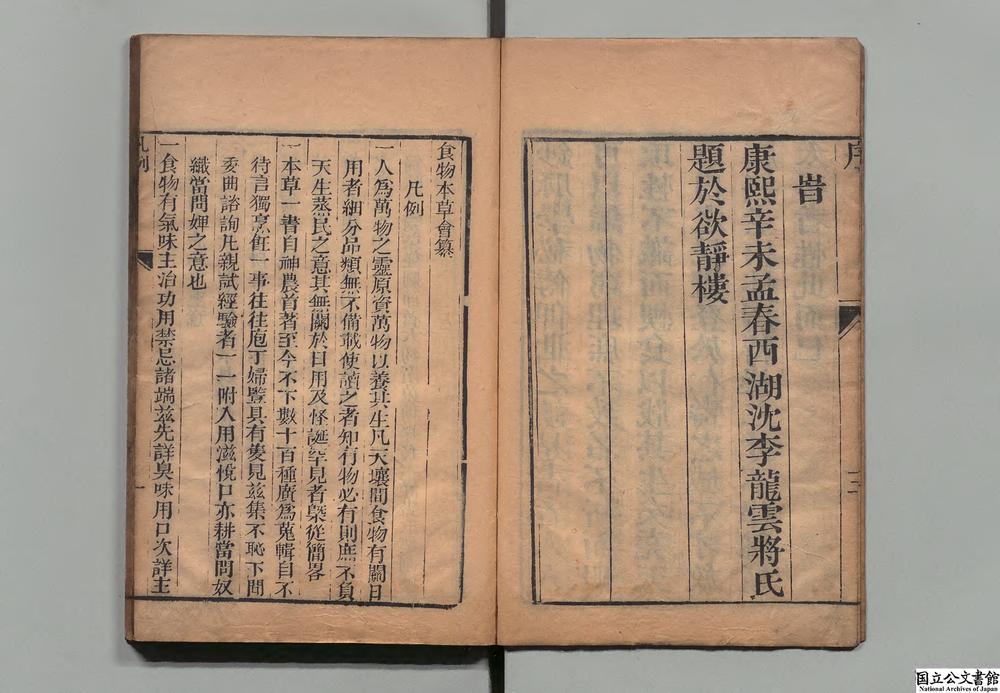 序
旹
康熙辛未孟春西湖沈李龍雲將氏
題於欲靜樓
三
食物本草會纂
凡例
一人爲萬物之靈原資萬物以養其生凡天壤間食物有關日
用者細分品類無不備載使讀之者知有物必有則庶不負
天生蒸民之意其無關於日用及怪誕罕見者槩從簡畧
一本草一書自神農首著至今不下數十百種廣爲蒐輯自不
待言獨烹飪一事往往庖丁婦豎具有隻見兹集不恥下問
委曲諮詢凡親試經驗者一一附入用滋悅口亦耕當問奴
織當問婢之意也
一食物有氣味主治功用禁忌諸端兹先詳臭味用口次詳主
凡例
一
国立公文書館
National Archives of Japan